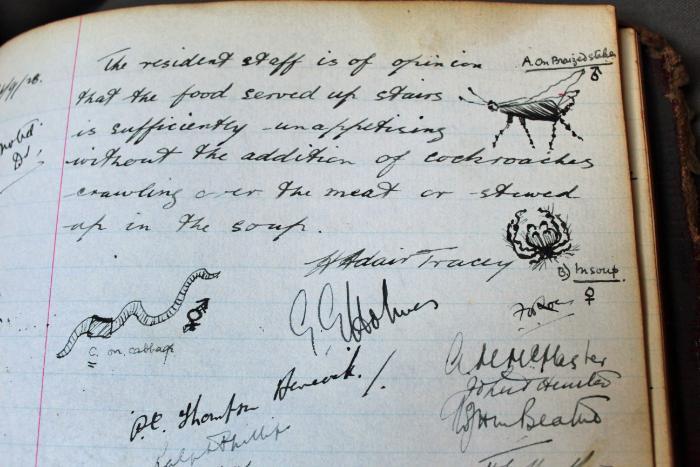 The resident staff is of opinion
that the food served up stairs
is sufficiently unappetising
without the addition of cockroaches
crawling over the meat or stewed
up in the soup.
A. On Braized steak
♂
H Adair Tracey
B) In soup.
♀
G G Holmes
C. on cabbage
P.C. Thompson
A McMaster
John Hunter
Ralph Phillips